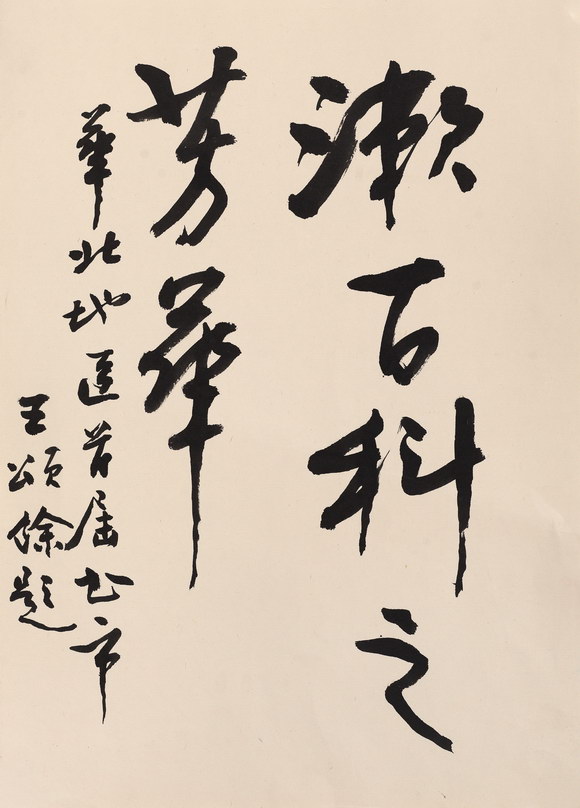 漱百科之
芳華
華北地區首屆书市
王頌餘題